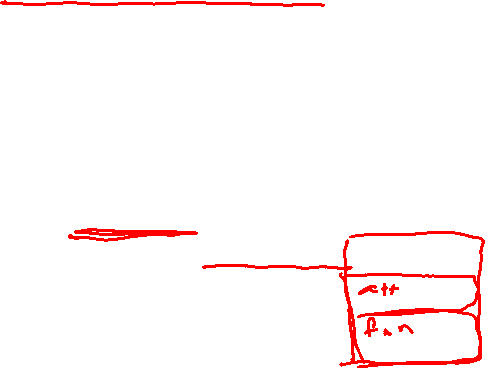 att
fun